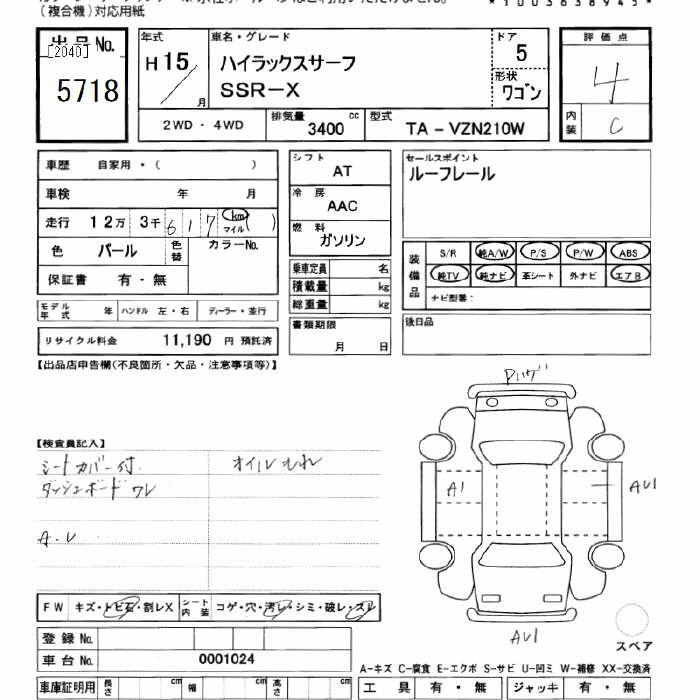 (複合機)対応用紙
*1003638945*
出品No.
[2040]
5718
年式
H15/月
車名・グレード
ハイラックスサーフ
SSR-X
ドア
5
形状
ワゴン
評価点
4
内装
C
2WD・4WD
排気量 3400 cc
型式 TA-VZN210W
車歴 自家用・( )
車検 年 月
走行 12万 3千 617 km マイル ( )
色 パール 色替 カラーNo.
保証書 有・無
モデル年式 年 ハンドル 左・右 ディーラー・並行
リサイクル料金 11,190 円 預託済
シフト
AT
冷房
AAC
燃料
ガソリン
乗車定員 名
積載量 kg
総重量 kg
書類期限
月 日
セールスポイント
ルーフレール
装備品
S/R 純A/W P/S P/W ABS
純TV 純ナビ 革シート 外ナビ エアB
ナビ型番:
後日品
【出品店申告欄(不良箇所・欠品・注意事項等)】
【検査員記入】
シートカバー付
ダッシュボードワレ
A.U
オイルもれ
A1
AU1
AU1
FW キズ・トビ石・割レX シート内装 コゲ・穴・汚レ・シミ・破レ・スレ
登録No.
車台No. 0001024
車庫証明用 長さ cm 幅 cm 高さ cm
スペア
A-キズ C-腐食 E-エクボ S-サビ U-凹ミ W-補修 XX-交換済
工具 有・無 ジャッキ 有・無